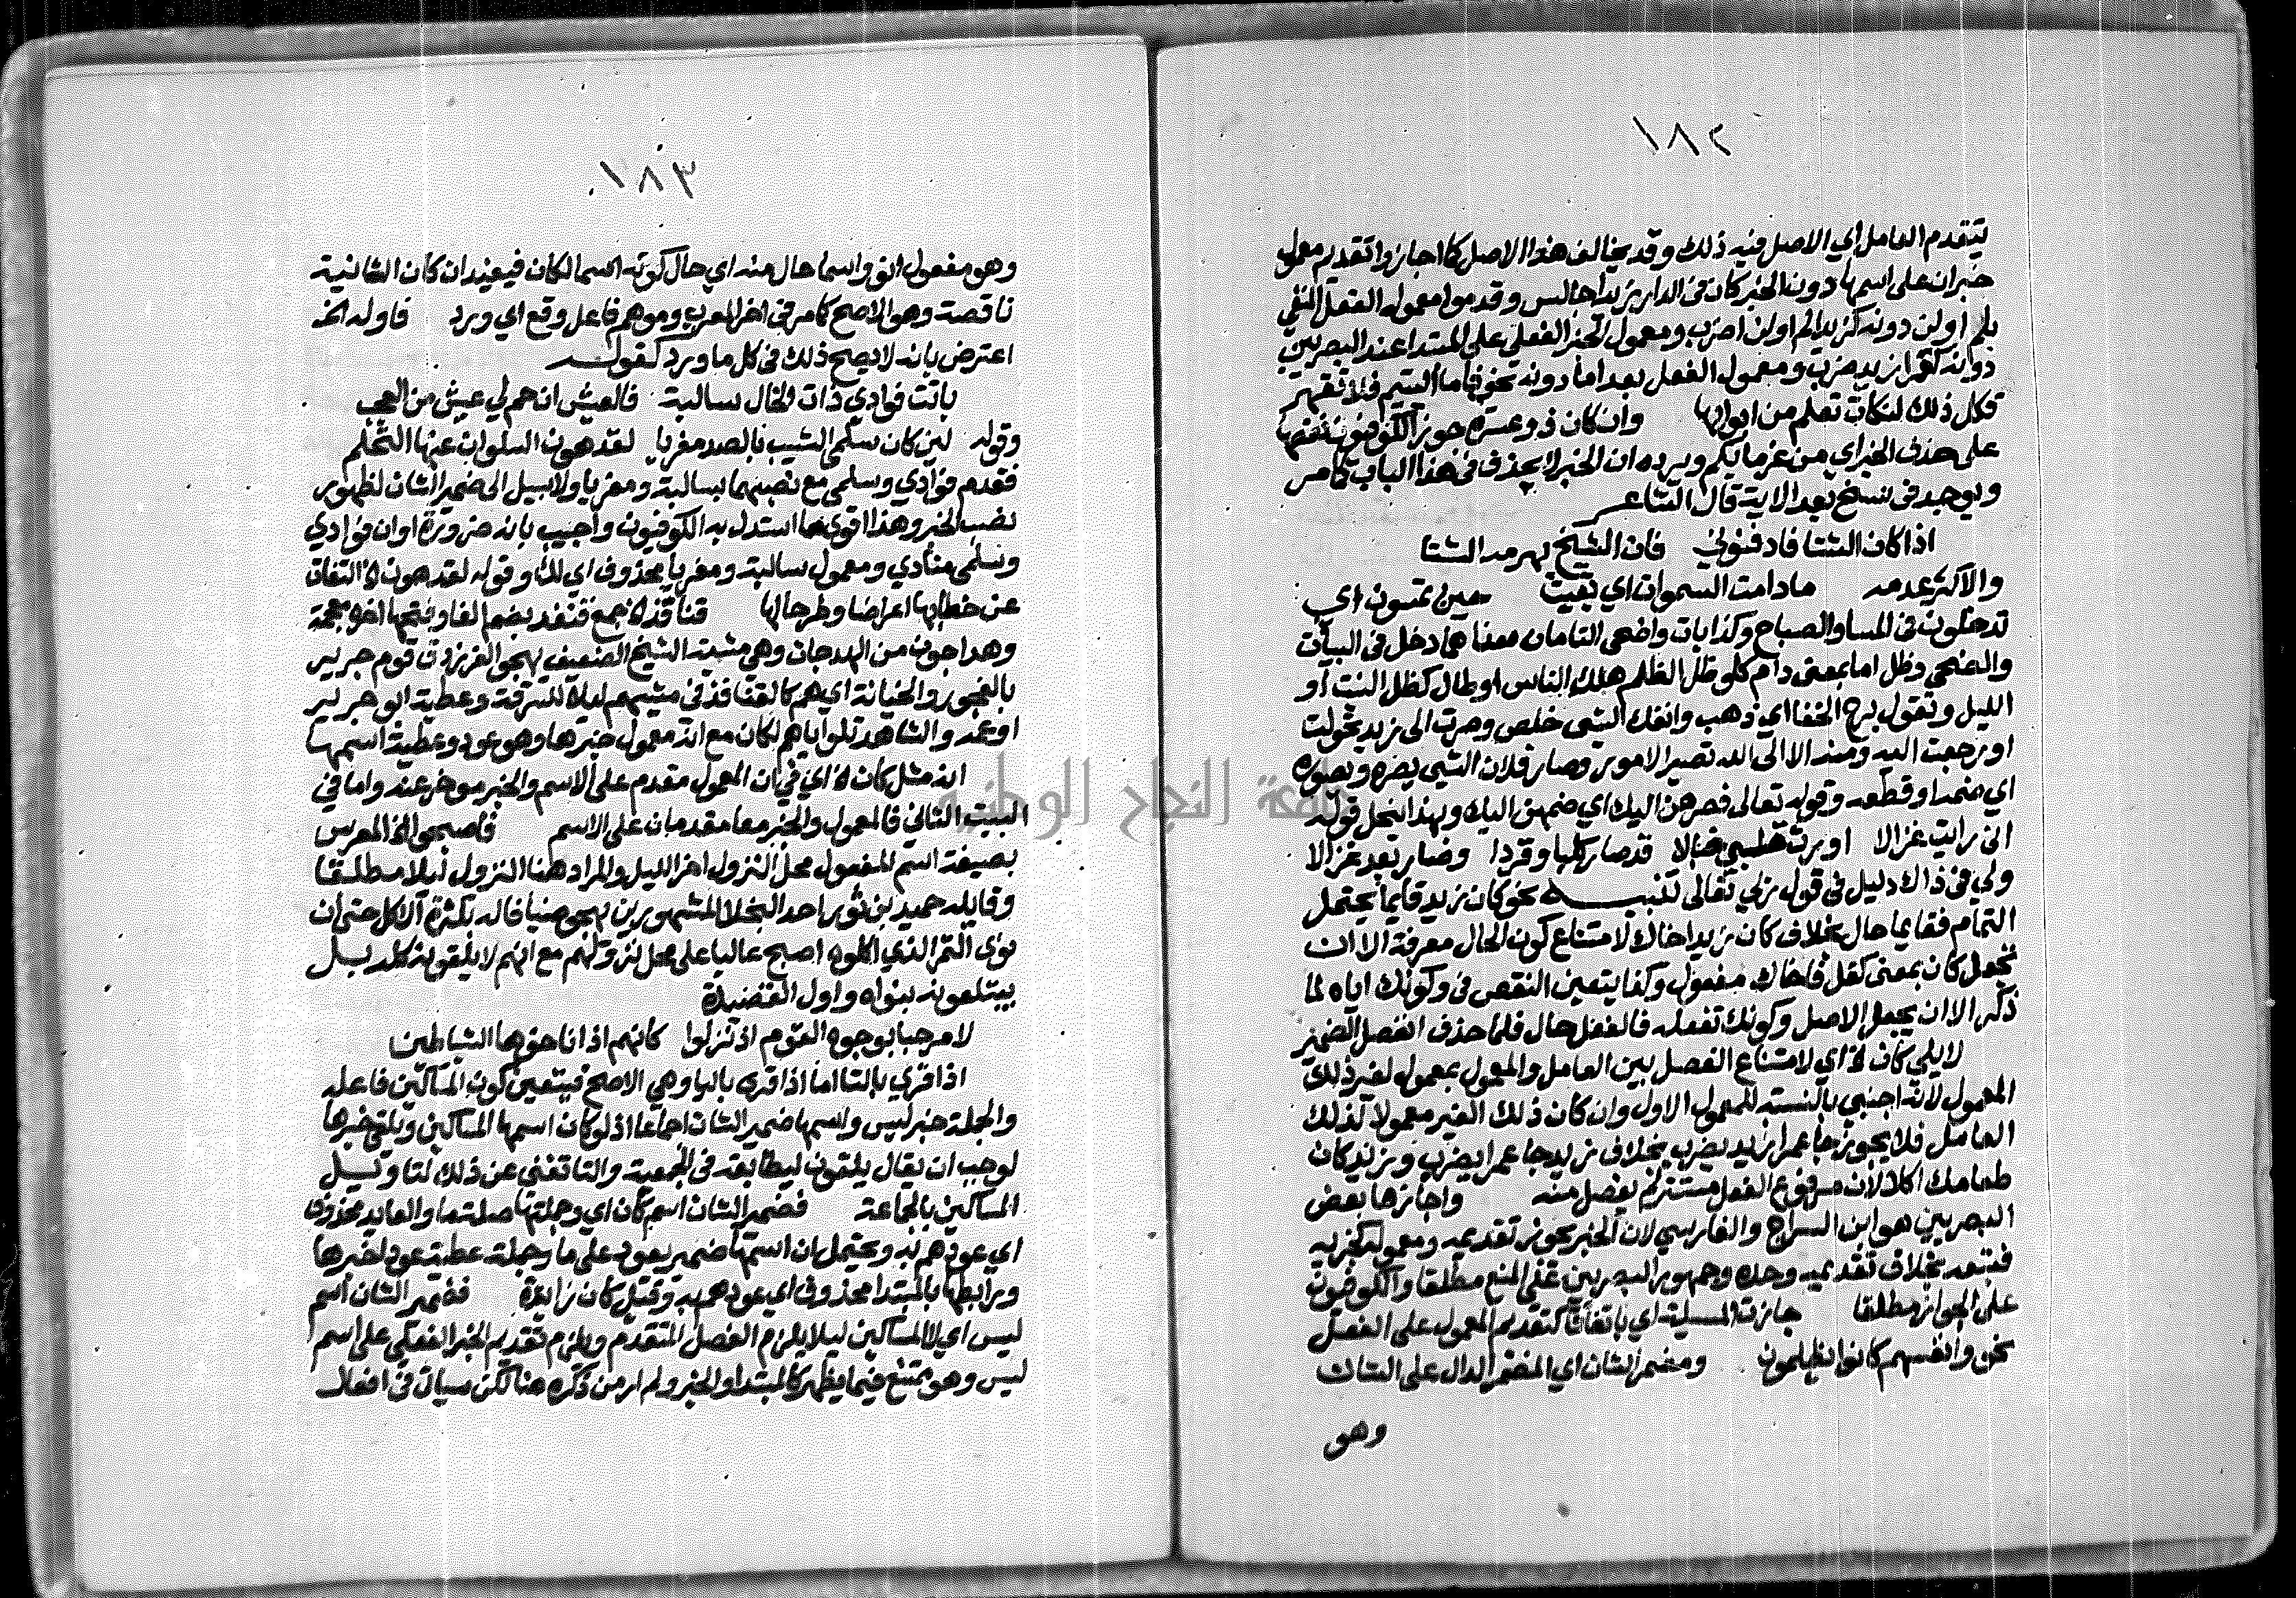 ١٨٢
يتقدم العامل اي الاصل فيه ذلك وقد يخالف هذا الاصل كما اجازوا تقديم معمول
خبر ان على اسمها دون الخبر كان في الدار زيدا جالس وقدموا معمول الفعل المنفي
بلم او لن دونه كزيدا لم او لن اضرب ومعمول الخبر الفعلي على المبتدا عند البصريين
دونه كعمرا زيد ضرب ومعمول الفعل بعد اما دونه نحو فاما اليتيم فلا تقهر
فكل ذلك لنكات تعلم من ابوابها وان كان ذو عسرة جوز الكوفيون نقصها
على حذف الخبر اي من غرمايكم ويرده ان الخبر لا يحذف في هذا الباب كما مر
ويوجد في نسخ بعد الاية قال الشاعر
اذا كان الشتا فادفنوني فان الشيخ يهرمه الشتا
والاكثر عدمه مادامت السموات اي بقيت حين تمسون اي
تدخلون في المسا والصباح وكذا بات واضحى التامان معناهما دخل في البيات
والضحى وظل اما بمعنى دام كلو ظل الظلم هلك الناس او طال كظل النبت او
الليل وتقول برح الخفا اي ذهب وانفك الشي خلص وصرت الى زيد تحولت
او رجعت اليه ومنه الا الى الله تصير الامور وصار فلان الشي يصيره ويصوره
اي ضمه او قطعه وقوله تعالى فصرهن اليك اي ضمهن اليك وبهذا ينحل قوله
اني رايت غزالا اورث قلبي خبالا قد صار كلبا وقردا وصار بعد غزالا
ولي في ذاك دليل في قول ربي تعالى تنبيه نحو كان زيد قايما يحتمل
التمام فقايما حال بخلاف كان زيد اخاك لامتناع كون الحال معرفة الا ان
تجعل كان بمعنى كفل فاخاك مفعول وكذا يتعين النقص في وكونك اياه لما
ذكر الا ان يجعل الاصل وكونك تفعله فالفعل حال فلما حذف انفصل الضمير
لا يلي كان الخ اي لامتناع الفصل بين العامل والمعمول بمعمول لغير ذلك
المعمول لانه اجنبي بالنسبة للمعمول الاول وان كان ذلك الغير معمولا لذلك
العامل فلا يجوز جا عمرا زيد يضرب بخلاف زيد جا عمرا يضرب وزيد كان
طعامك اكلا لان مرفوع الفعل مستتر لم يفصل منه واجازها بعض
البصريين هو ابن السراج والفارسي لان الخبر يجوز تقديمه ومعموله كجزيه
فتبعه بخلاف تقديمه وحده وجمهور البصريين على المنع مطلقا والكوفيون
على الجواز مطلقا جازت المسيلة اي باتفاق كتقديم المعمول على الفعل
نحو وانفسهم كانوا يظلمون ومضمر الشان اي المضمر الدال على الشان
وهو
١٨٣
وهو مفعول انو واسما حال منه اي حال كونه اسما لكان فيفيد ان كان الشانية
ناقصة وهو الاصح كما مر في اخر المعرب وموهم فاعل وقع اي ورد فاوله الخ
اعترض بانه لا يصح ذلك في كل ما ورد كقوله
باتت فوادي ذات الخال سالبة فالعيش ان حم لي عيش من العجب
وقوله لين كان سلمى الشيب بالصد مغريا لقد هون السلوان عنها التحلم
فقدم فوادي وسلمى مع نصبهما بسالبة ومغريا ولا سبيل الى ضمير الشان لظهور
نصب الخبر وهذا اقوى ما استدل به الكوفيون واجيب بانه ضرورة او ان فوادي
وسلمى منادي ومعمول سالبة ومغريا محذوف اي لك وقوله لقد هون الخ التفات
عن خطابها اعراضا وطرحا لها قنافذ الخ جمع قنفد بضم الفا وفتحها اخره معجمة
وهداجون من الهدجان وهي مشية الشيخ الضعيف يهجو الفرزدق قوم جرير
بالفجور والخيانة اي هم كالقنافذ في مشيهم ليلا للسرقة وعطية ابو جرير
او عمه والشاهد تلو اياهم لكان مع انه معمول خبرها وهو عود وعطية اسمها
انه مثل كان الخ اي في ان المعمول مقدم على الاسم والخبر موخر عنه واما في
البيت الثاني فالمعمول والخبر معا مقدمان على الاسم فاصبحوا الخ المعرس
بصيغة اسم المفعول محل النزول اخر الليل والمراد هنا النزول ليلا مطلقا
وقايله حميد بن ثور احد البخلا المشهورين يهجو ضيافا له بكثرة الاكل حتى ان
نوى التمر الذي اكلوه اصبح عاليا على محل نزولهم مع انهم لا يلقونه كله بل
يبتلعونه بنواه واول القصيدة
لا مرحبا بوجوه القوم اذ نزلوا كانهم اذ اناخوها الشياطين
اذا قري بالتا اما اذا قري باليا وهي الاصح فيتعين كون المساكين فاعله
والجملة خبر ليس واسمها ضمير الشان اجماعا اذ لو كان اسمها المساكين ويلقى خبرها
لوجب ان يقال يلقون ليطابقه في الجمعية والتا تغني عن ذلك لتاويل
المساكين بالجماعة فضمير الشان اسم كان اي وجملتها صلة ما والعايد محذوف
اي عودهم به ويحتمل ان اسمها ضمير يعود على ما وجملة عطية عود خبرها
ورابطها بالمبتدا محذوف اي عودهم به وقيل كان زايدة فضمير الشان اسم
ليس اي لا المساكين ليلا يلزم الفصل المتقدم ويلزم تقديم الخبر الفعلي على اسم
ليس وهو ممتنع فيما يظهر كالمبتدا والخبر ولم ار من ذكره هنا لكن سياتي في افعال
جامعة النجاح الوطنية